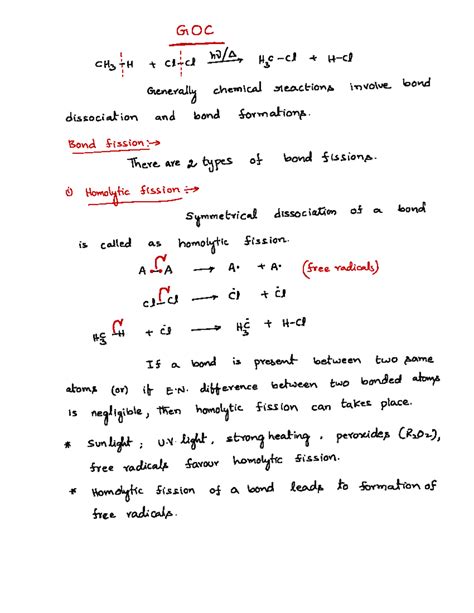 GOC
CH₃-H + Cl-Cl hν/Δ → H₃C-Cl + H-Cl
Generally chemical reactions involve bond
dissociation and bond formations.
Bond fission:→
There are 2 types of bond fissions.
i) Homolytic fission:→
Symmetrical dissociation of a bond
is called as homolytic fission.
A-A → A• + A• (free radicals)
Cl-Cl → Cl• + Cl•
H₃C-H + Cl• → H₃C• + H-Cl
If a bond is present between two same
atoms (or) if E.N. difference between two bonded atoms
is negligible, then homolytic fission can takes place.
* Sunlight, U.V. light, strong heating, peroxides (R₂O₂),
free radicals favour homolytic fission.
* Homolytic fission of a bond leads to formation of
free radicals.